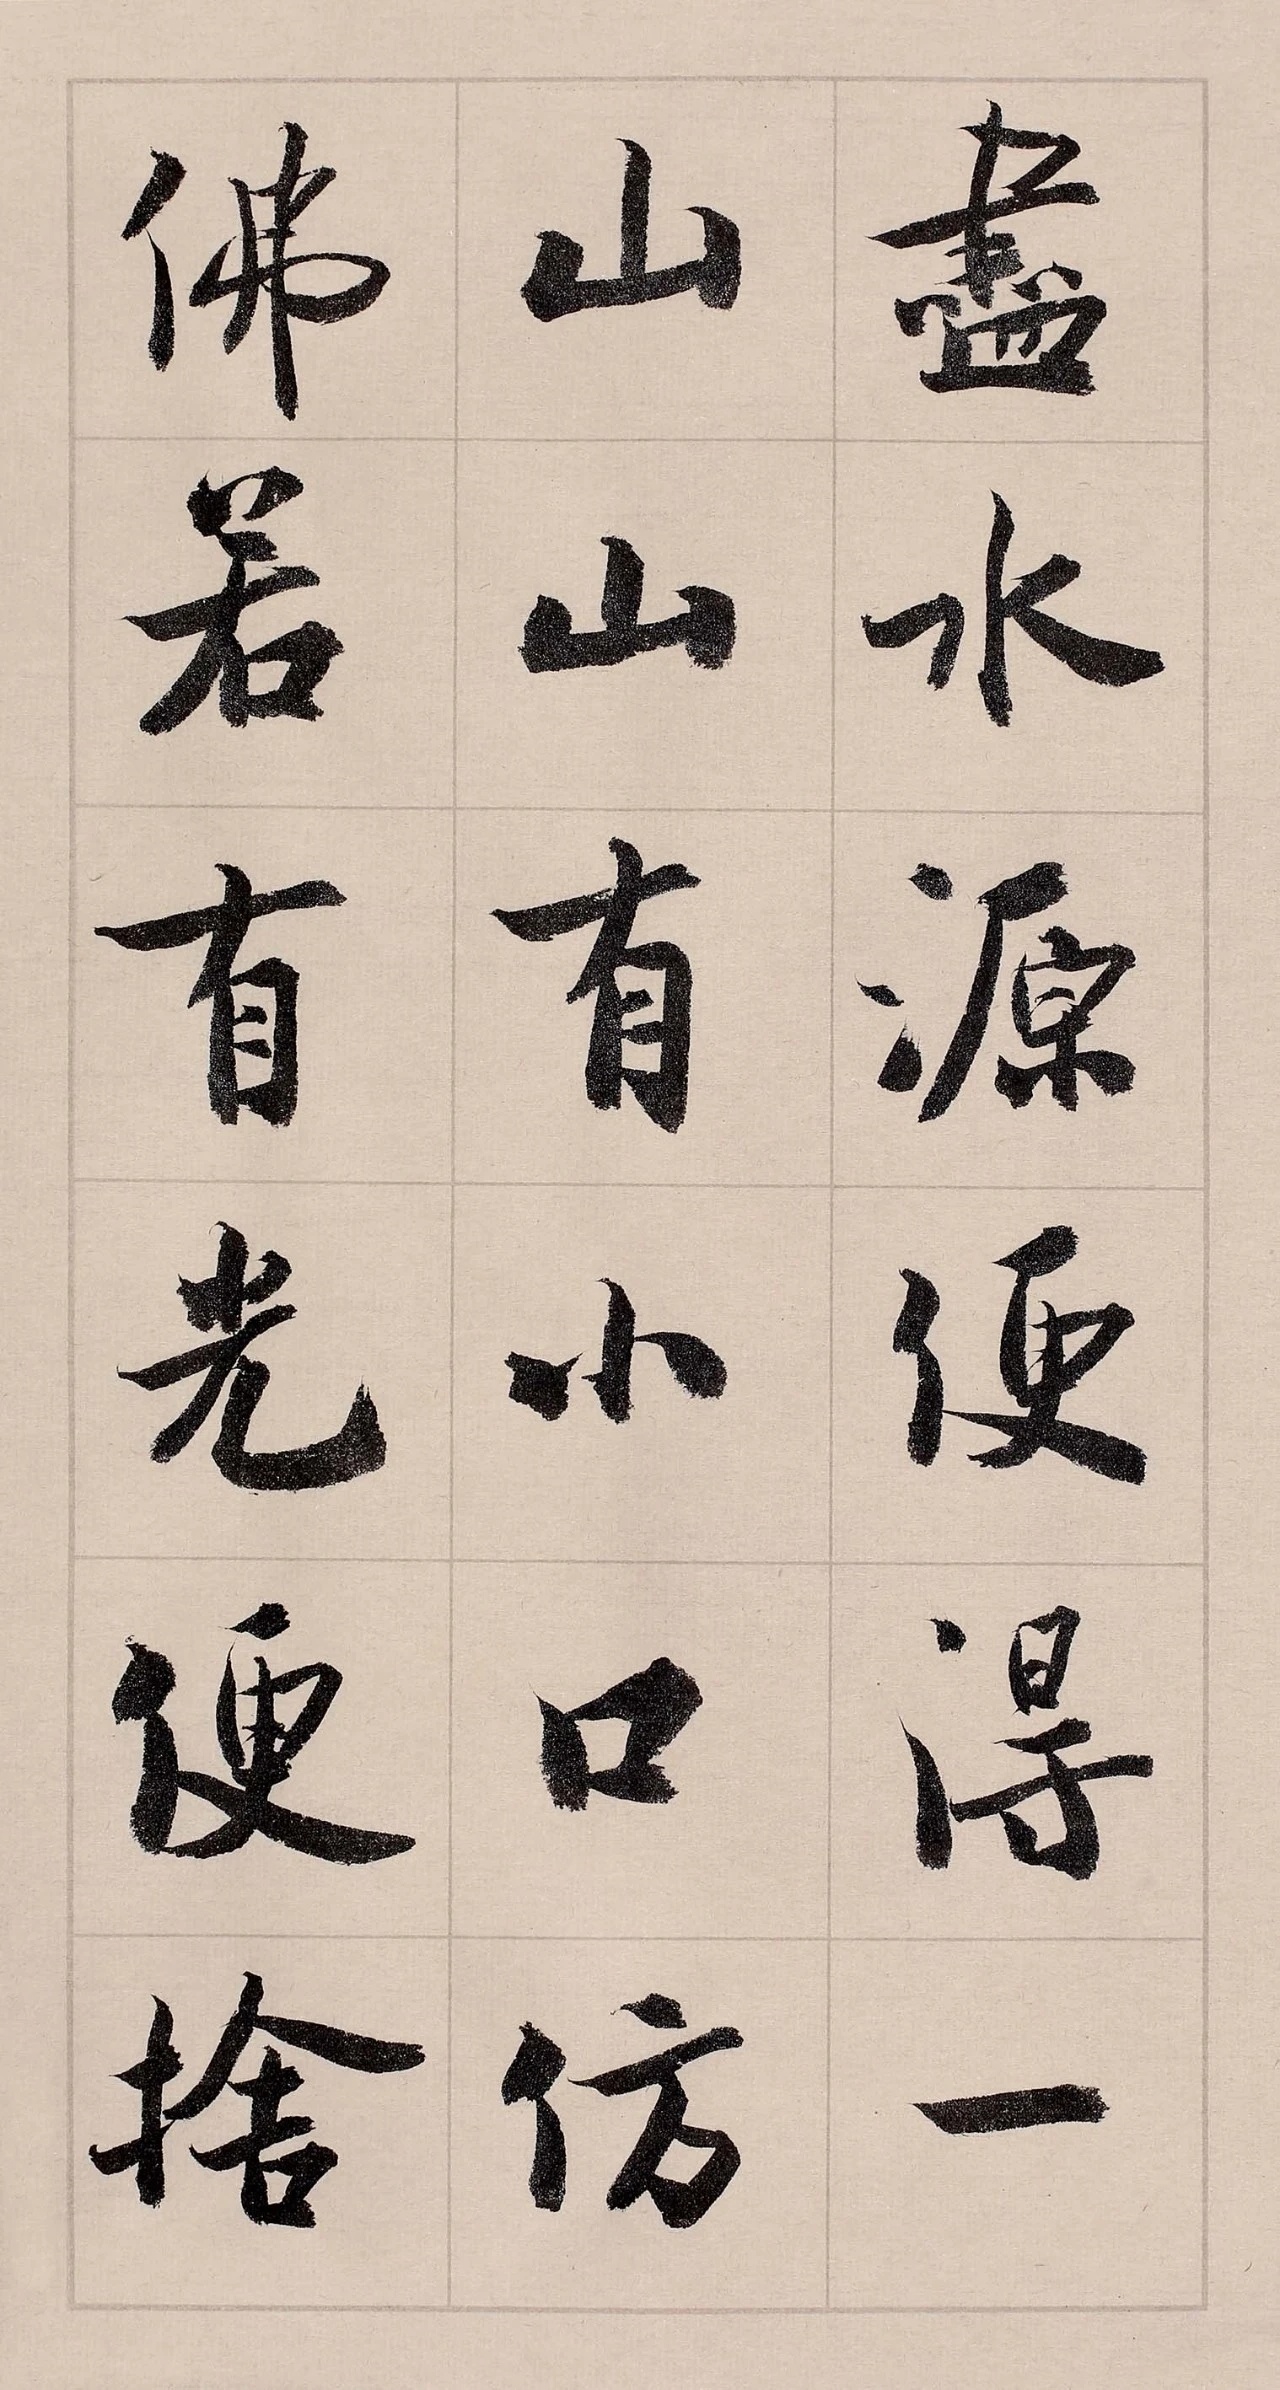 盡水源便得一
山山有小口仿
佛若有光便捨